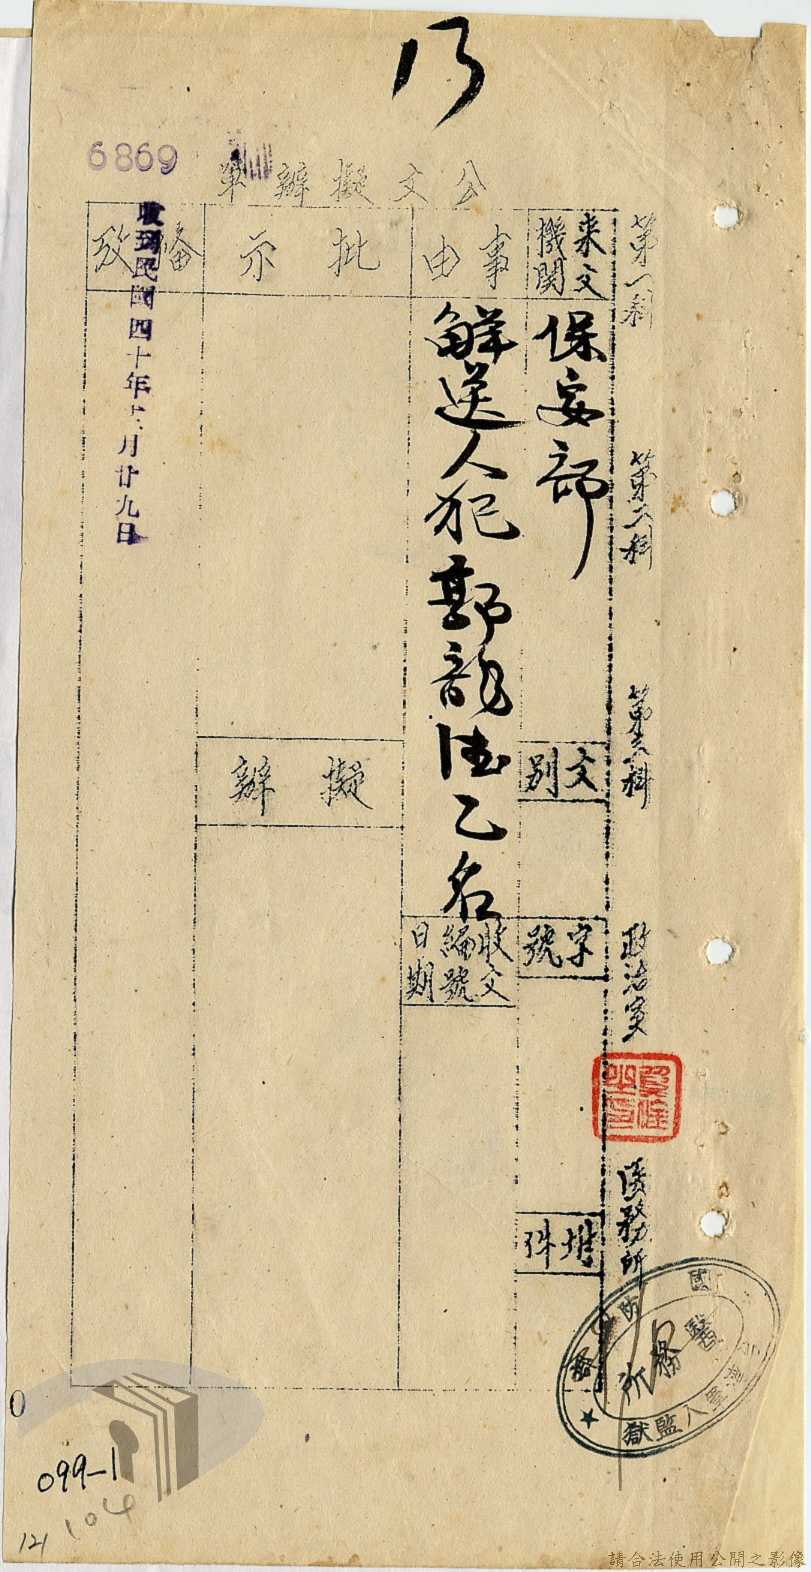 6869
公文擬辦單
第一科
第二科
第三科
政治室
醫務所
來文機関
保安部
文別
字號
附件
事由
解送人犯郭龍德乙名
收文編號日期
批示
擬辦
備攷
收到民國四十年十二月廿九日
國防部
軍人監獄
醫務所
099-1
104
121
請合法使用公開之影像